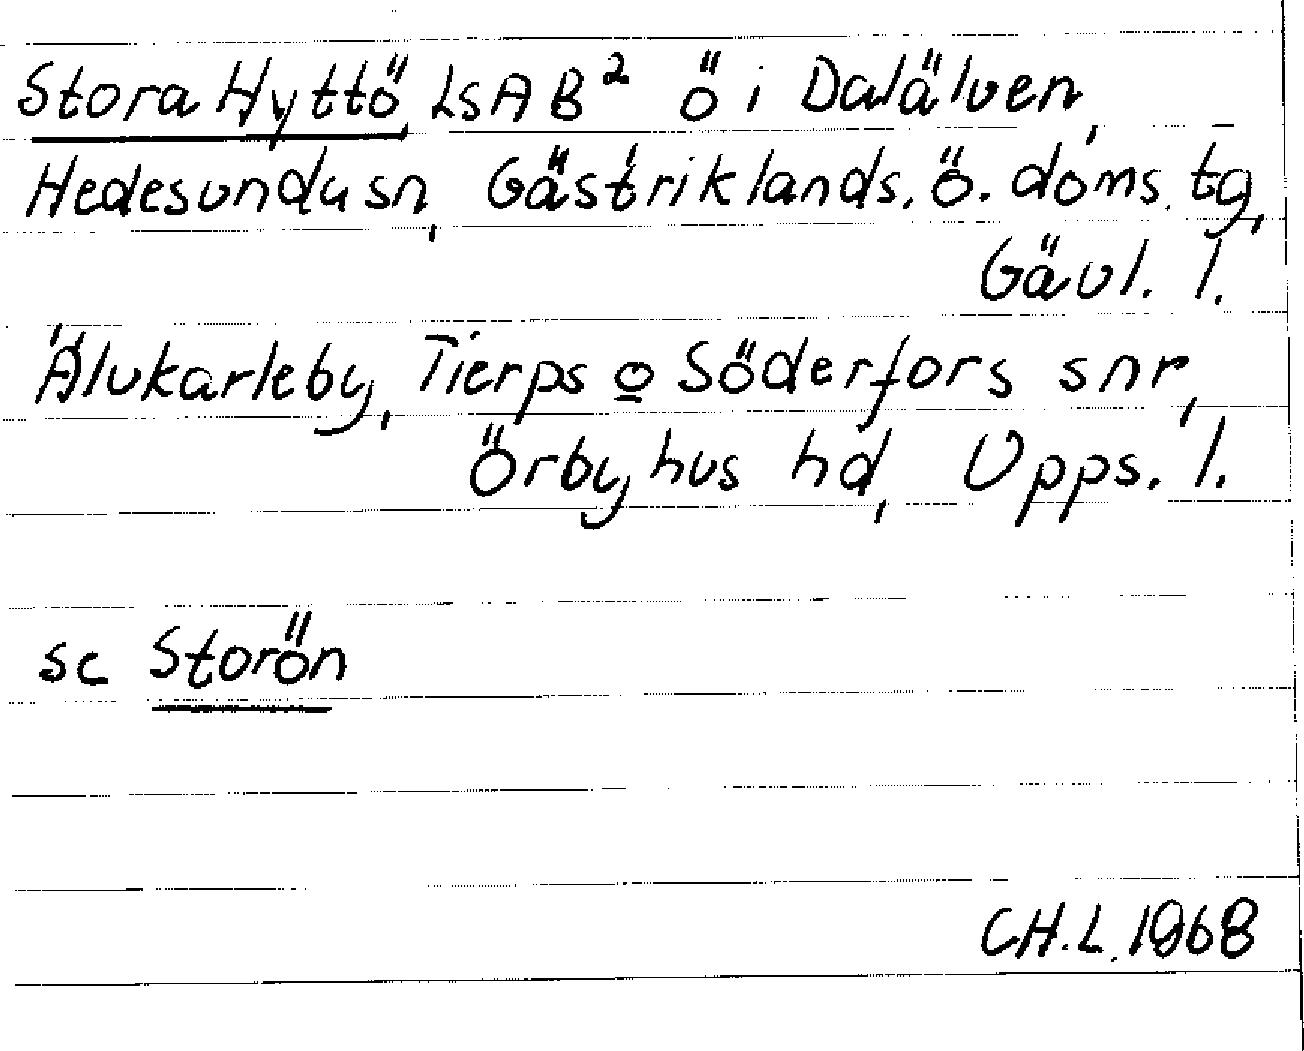 Stora Hyttö, LSAB² ö i Dalälven,
Hedesunda sn, Gästriklands. ö. doms. tg,
Gävl. l.
Älvkarleby, Tierps o Söderfors snr,
Örbyhus hd, Upps. l.
se Storön
CH.L. 1968